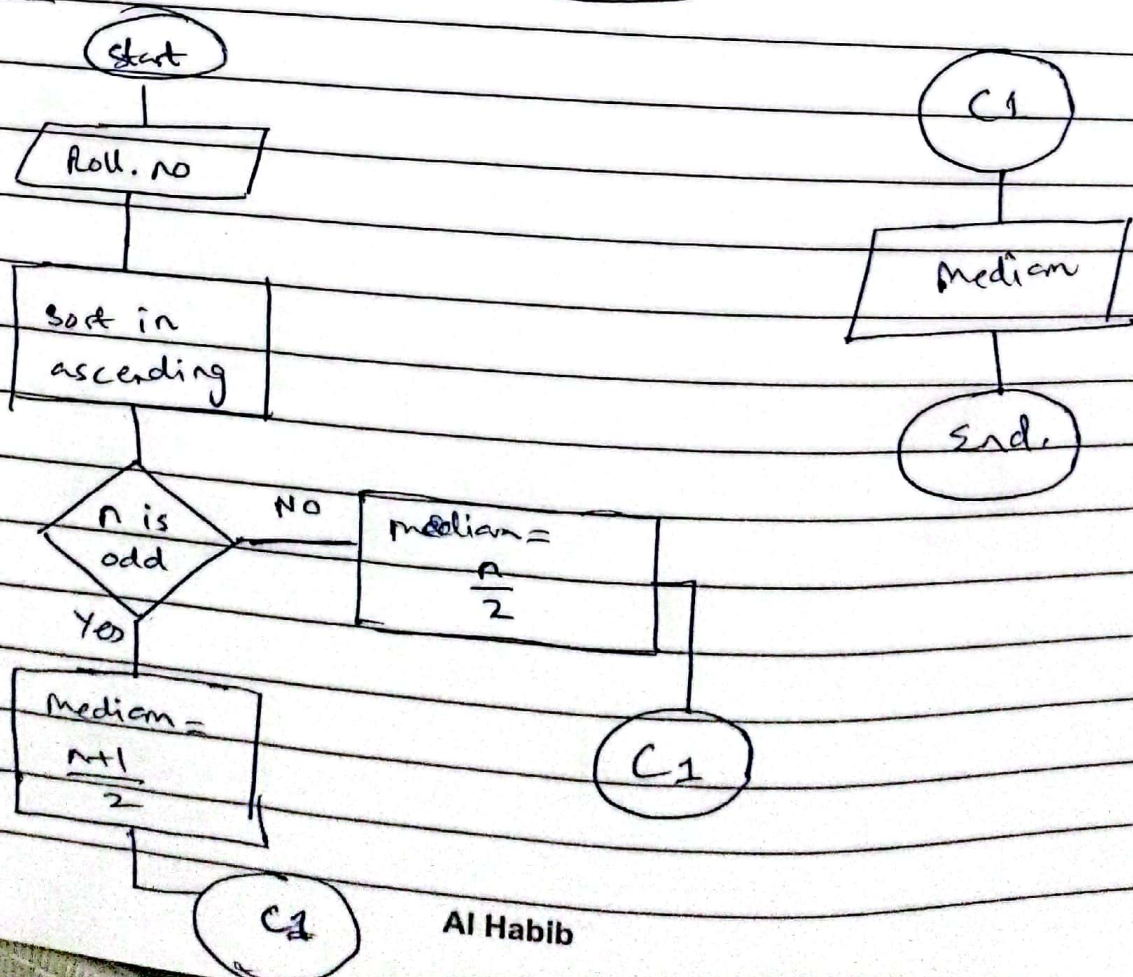 Start
Roll. no
Sort in
ascending
n is
odd
NO
median =
n
2
Yes
Median =
n+1
2
C1
C1
C1
Median
End.
Al Habib